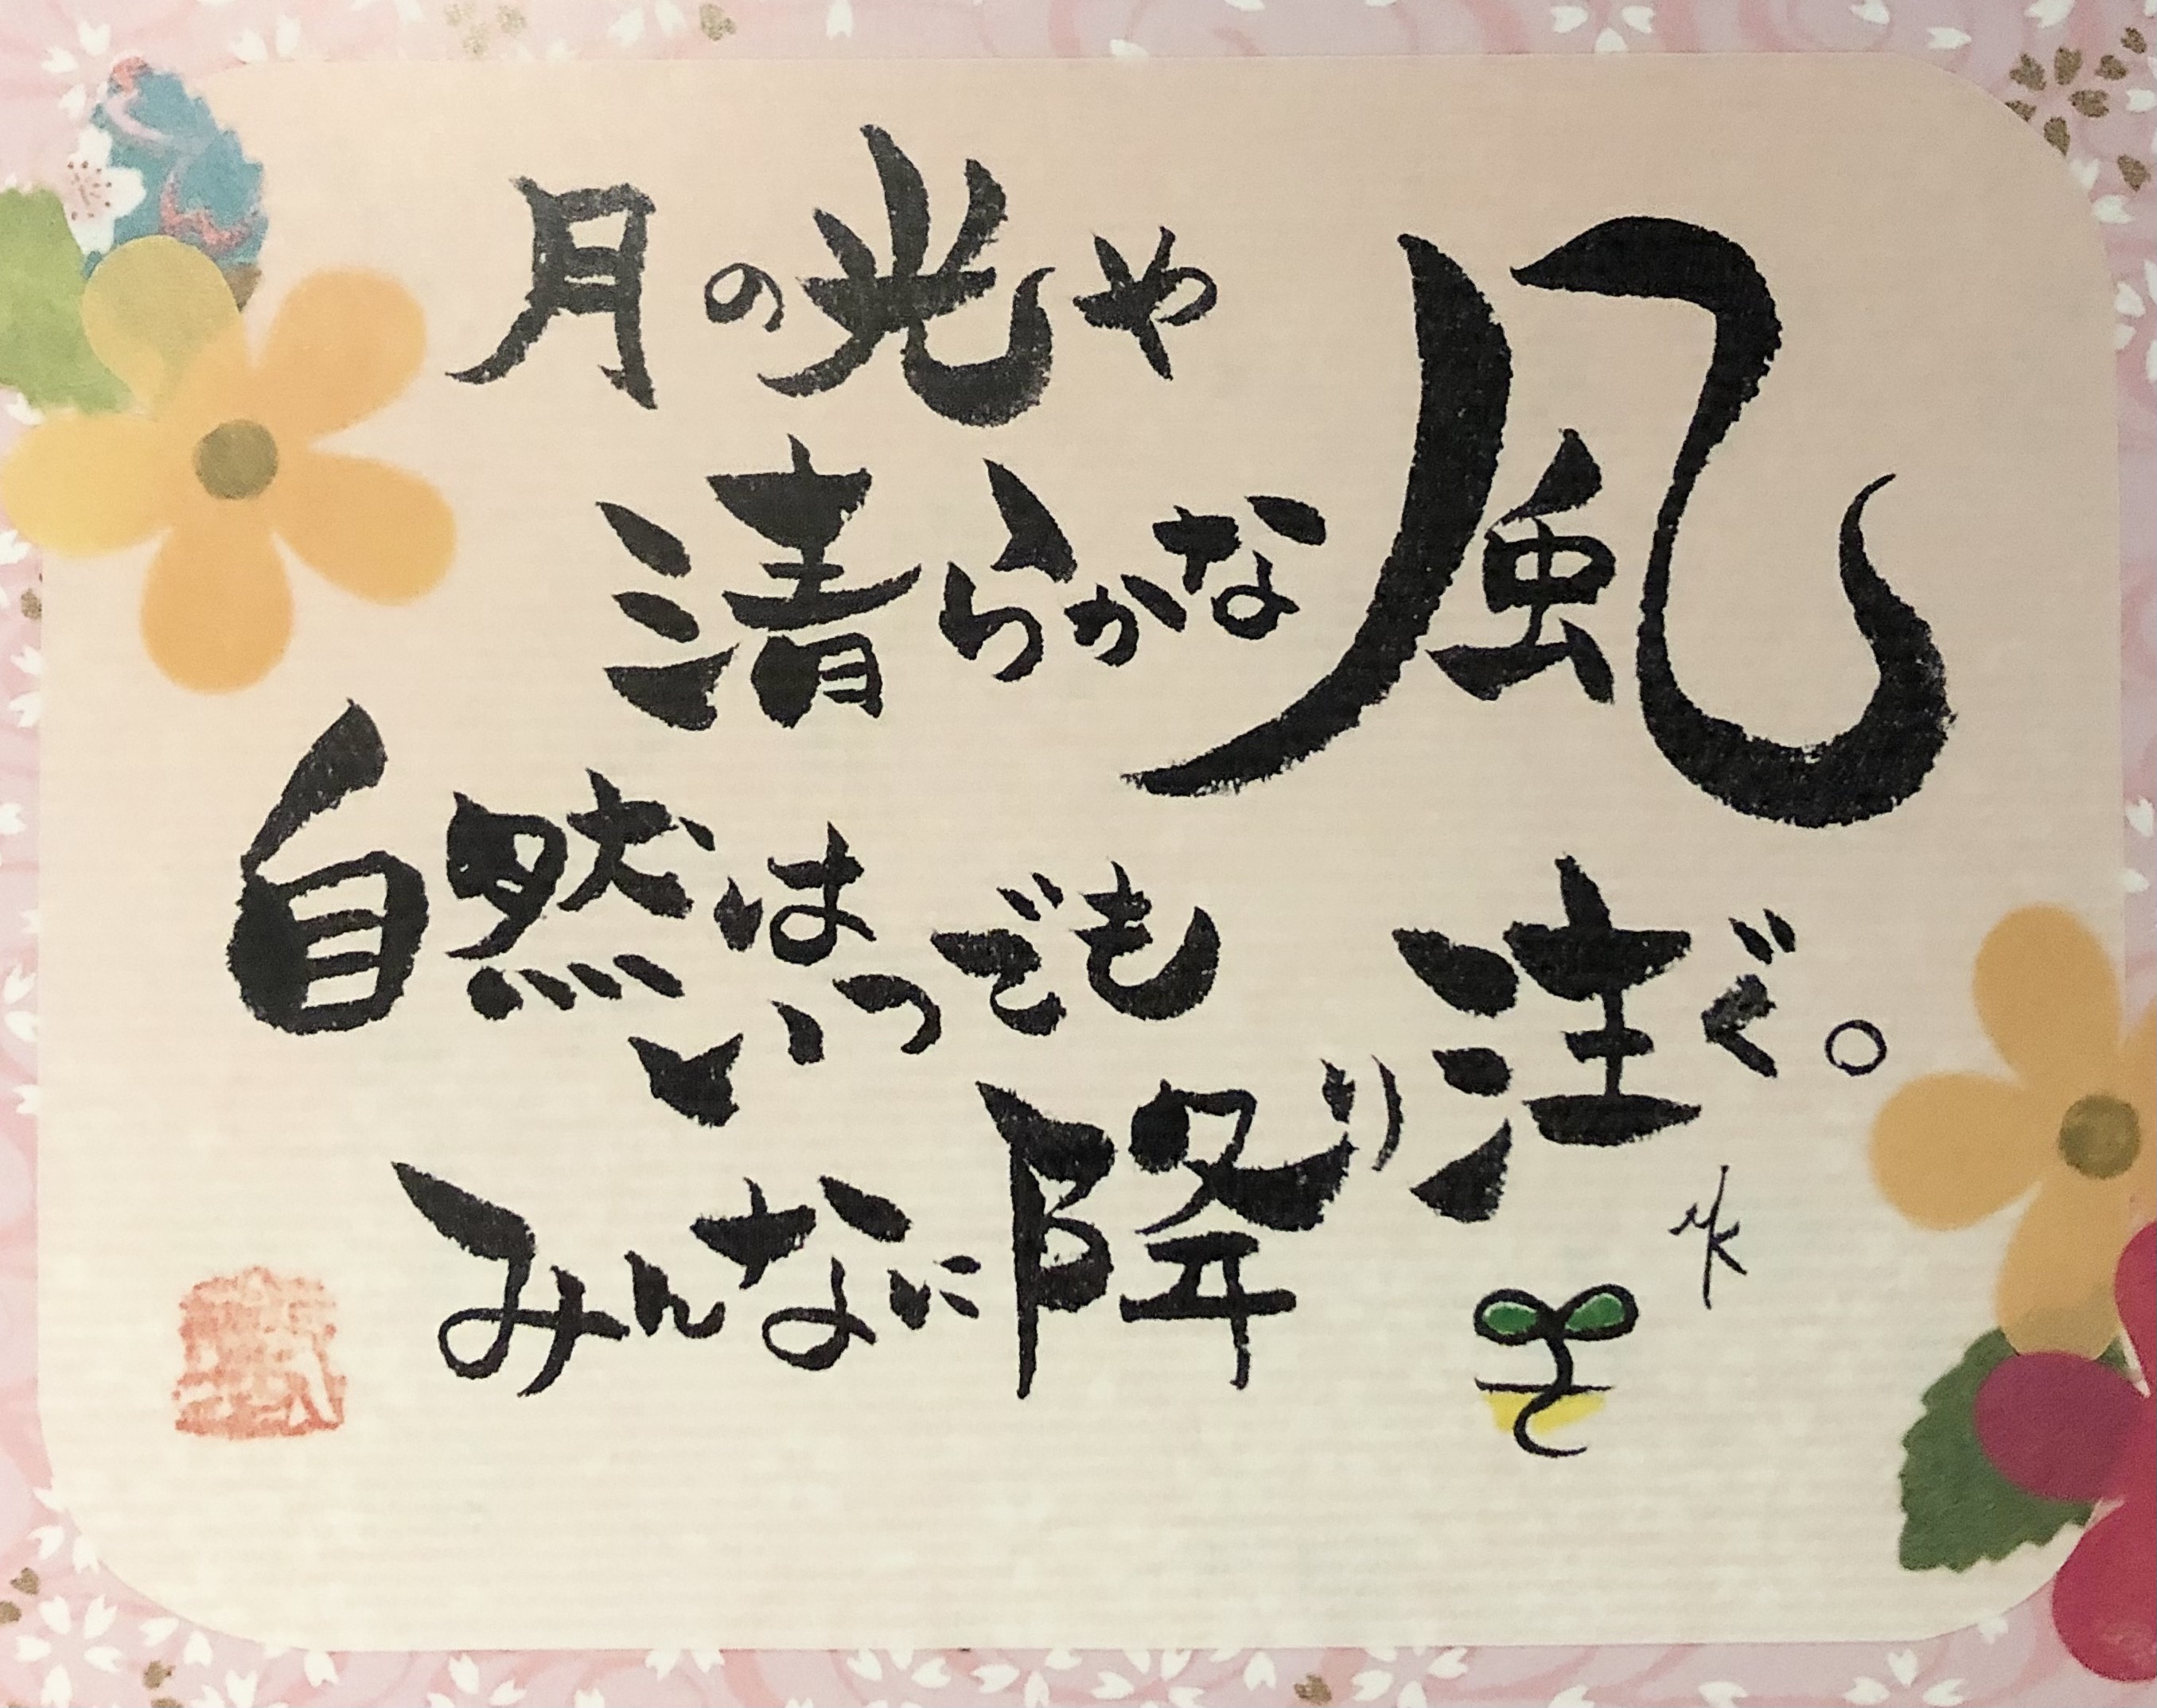 月の光や
清らかな風
自然はいつでも
みんなに降り注ぐ。